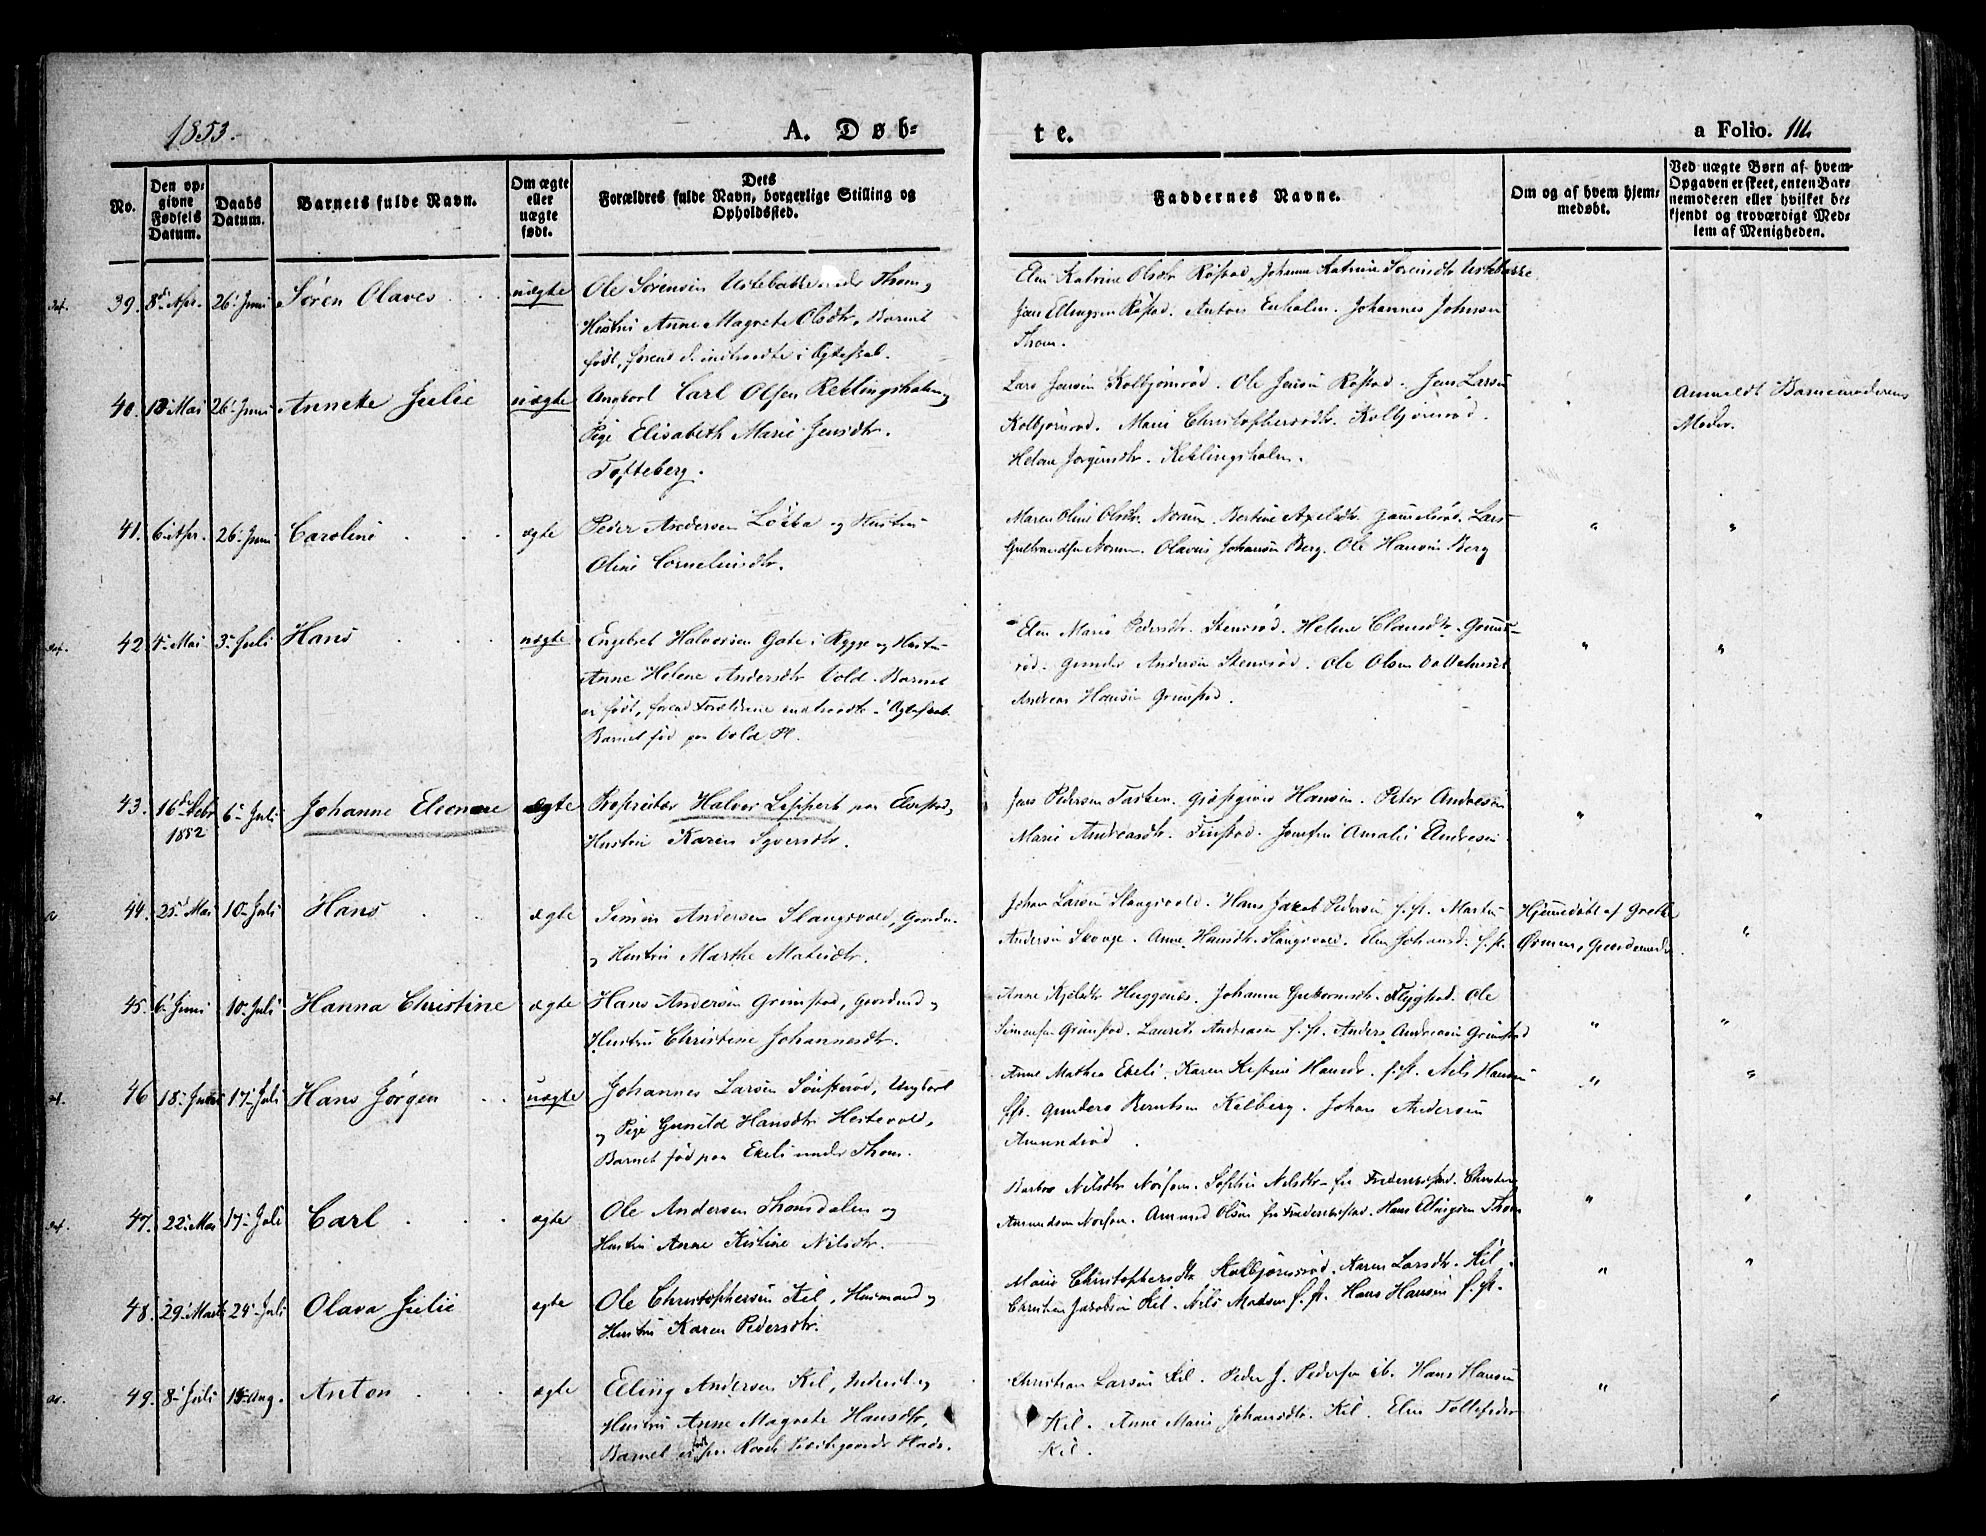 1853.
A. Døb=
te.
a Folio. 111.
No.
Den op=
givne
Fødsels
Datum.
Daabs
Datum.
Barnets fulde Navn.
Om ægte
eller
uægte
født.
Dets
Forældres fulde Navn, borgerlige Stilling og
Opholdssted.
Faddernes Navne.
Om og af hvem hjem=
medøbt.
Ved uægte Børn af hvem
Opgaven er skeet, enten Bar=
nemoderen eller hvilket be=
kjendt og troværdigt Med=
lem af Menigheden.
39. 8d Apr. 26 Juni Søren Olaves uægte Ole Sørensen under Thom og
Hustru Anne Magrete Olsdtr. Barnet
født, forend de indtraadte i Ægteskab.
Elen Katrine Olsdtr Røstad, Johanne Katrine Sørensdtr
Jens Ellingsen Røstad. Antoni Enholm. Johannes Johnsen
Thom.
40. 13 Mai 26 Juni Anneke Julie uægte Ungkarl Carl Olsen Keklingsholm og
Pige Elisabeth Marie Jensdtr.
Tofteberg.
Lars Jensen Kolbjørnsrød. Ole Jensen Røstad. Jens Larsen
Kolbjørnsrød. Marie Christophersdtr. Kolbjørnsrød.
Helene Jørgensdtr. Keklingsholm.
Anmeldt Barnemoderens
Moder.
41. 6 Apr. 26 Juni Caroline ægte Peder Andersen og Hustru
Oline Corneliusdtr.
Maren Oline Olsdtr. Norum. Bertine Axelsdtr. Lars
Gulbrandsen Norum. Olaves Johansen Berg. Ole Hansen Berg
42. 4 Mai 3 Juli Hans uægte Engebret Halvorsen Gate i Rygge og Hustru
Anne Helene Andersdtr Vold. Barnet
er født, forend Forældrene indtraadte i Ægteskab.
Barnet fød paa Vold Pl.
Elen Marie Pedersdtr. Stensrød. Helene Clausdtr.
rød. Gunder Andersen Stensrød. Ole Olsen
Andreas Hansen Grimstad.
43. 16d Febr 1852 6 Juli Johanne Eleonore ægte Proprietær Halvor Leppert paa Elvestad,
Hustru Karen Syversdtr.
Jens Pedersen Hansen. Peter Andresen
Marie Andreasdtr. Finstad. Josefin Amalie Andresen
44. 25 Mai 10 Juli Hans ægte Simen Andersen Slangsvold, Gaardm.
og Hustru Marthe Matisdtr.
Johan Larsen Slangsvold. Hans Jakob Pedersen f. st. Martin
Andersen Skouge. Anne Hansdtr. Slangsvold. Elen Johansd. f. st.
Hjemmedøbt af Grethe
45. 6 Juni 10 Juli Hanna Christine ægte Hans Andersen Grimstad, Gaardmd og
Hustru Christine Johannesdtr.
Anne Kjølsdtr Huggenes. Johanne Guttormsdtr. Ole
Simensen Grimstad. Laurids Andreasen f. st. Anders Andresen Grimstad
46 18 17 Juli Hans Jørgen uægte Johannes Larsen Ungkarl
og Pige Gunild Hansdtr Hestevold,
Barnet fød paa Ekeli under Thom.
Anne Mathea Ekeli. Karen Kistine Hansdr. f. st. Nils Hansen
f. st. Gunders Berntsen Kelberg. Johan Andersen
Amundrød.
47. 22 Mai 17 Juli Carl ægte Ole Andersen Thomsdalen og
Hustru Anne Kistine Nilsdtr.
Barbro Nilsdtr Sophie Nilsdtr fra Frederikstad.
Amundsen Amund Olsen fra Frederikstad. Hans Ellingsen Thom
48. 29 Marts 24 Juli Olava Julie ægte Ole Christophersen Kil, Husmand og
Hustru Karen Pedersdtr.
Marie Christophersdtr Kolbjørnsrød. Karen Larsdtr. Kil.
Christian Jakobsen Kil. Nils Madsen f. st. Hans Hansen f. st.
49. 8 Juli 15 Aug. Anton ægte Elling Andersen Kil, Inderst og
Hustru Anne Magrete Hansdtr,
Barnet er født paa Raade Præstegaards
Christian Larsen Kil. Peder J. Pedersen ib. Hans Hansen
Kil. Anne Marie Johansdtr. Kil. Elen
Kil.